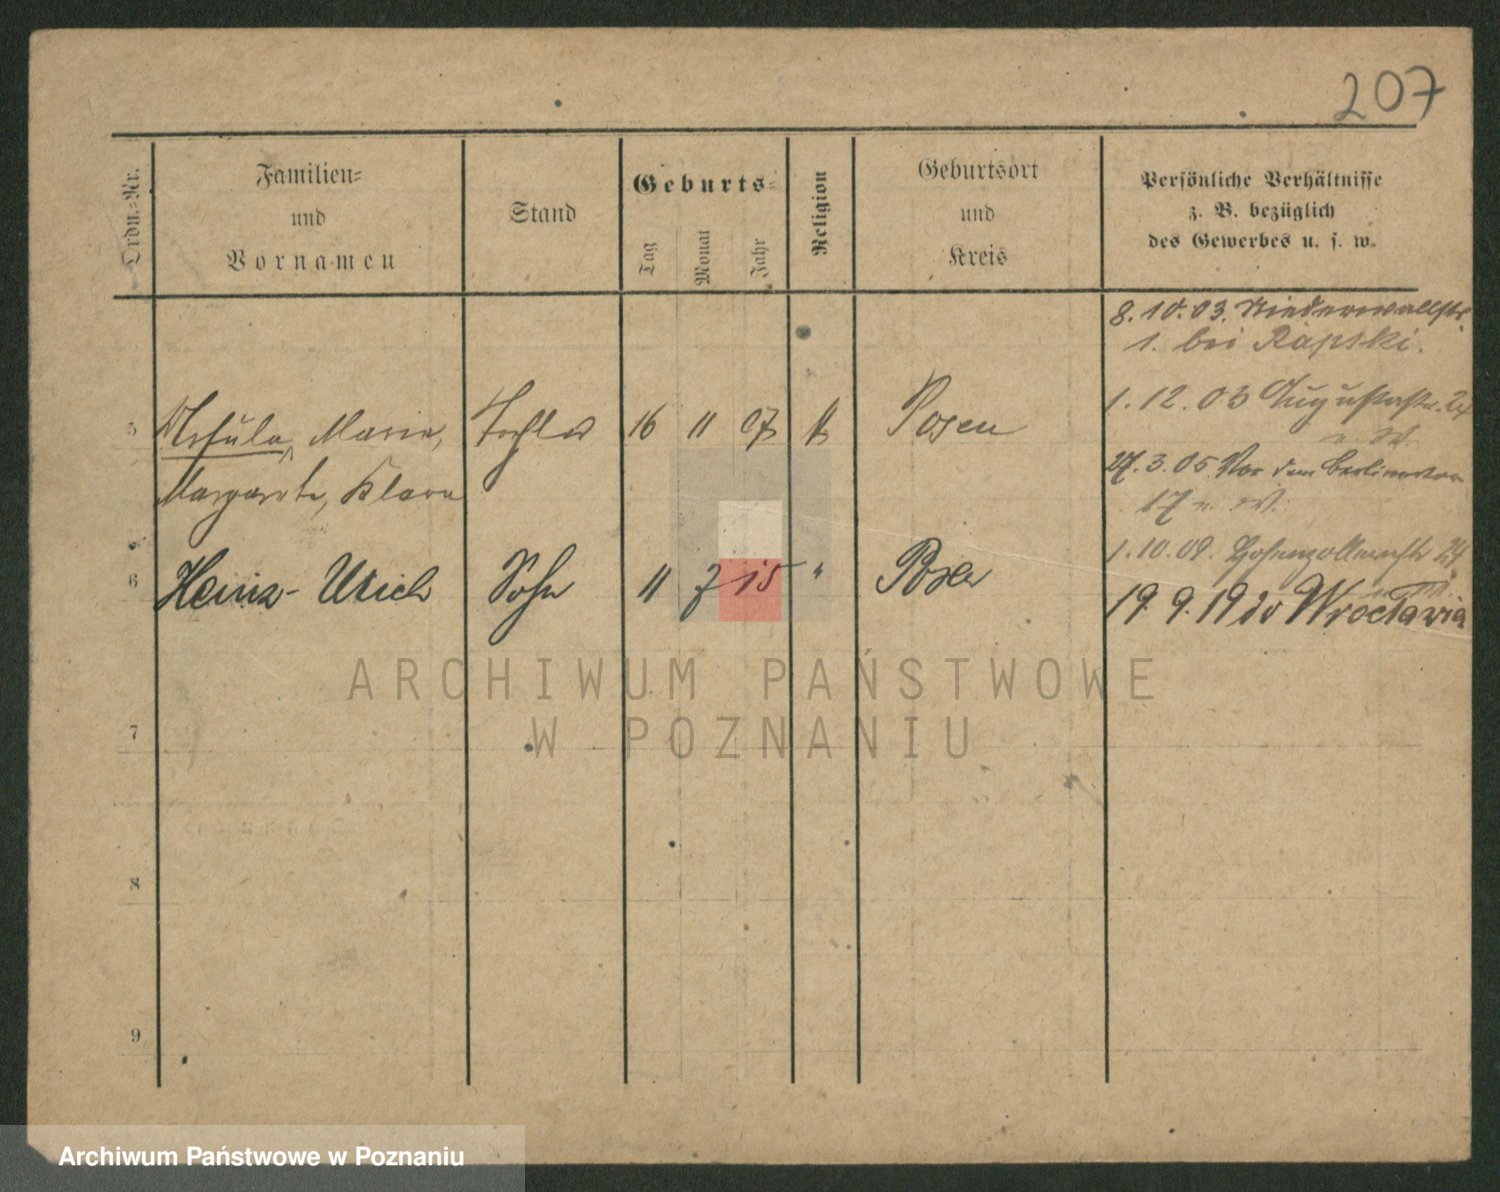 207
Ordn.-Nr.
Familien-
und
Vornamen
Stand
Geburts-
Tag
Monat
Jahr
Religion
Geburtsort
und
Kreis
Persönliche Verhältnisse
z. B. bezüglich
des Gewerbes u. s. w.
8. 10. 03. Niederwallstr.
1. bei Rapski.
1. 12. 03 Augustastr. 24
u. W.
5 Ursula, Marie, Tochter 16 11 07 Posen
Margarete, Klara
27. 3. 05. Vor dem Berlinertor
17 u. W.
1. 10. 09. Hohenzollernstr 24
6 Heinz-Ulrich Sohn 11 7 15 " Posen
19. 9. 1920 Wrocławia
7
8
9
ARCHIWUM PAŃSTWOWE
W POZNANIU
Archiwum Państwowe w Poznaniu